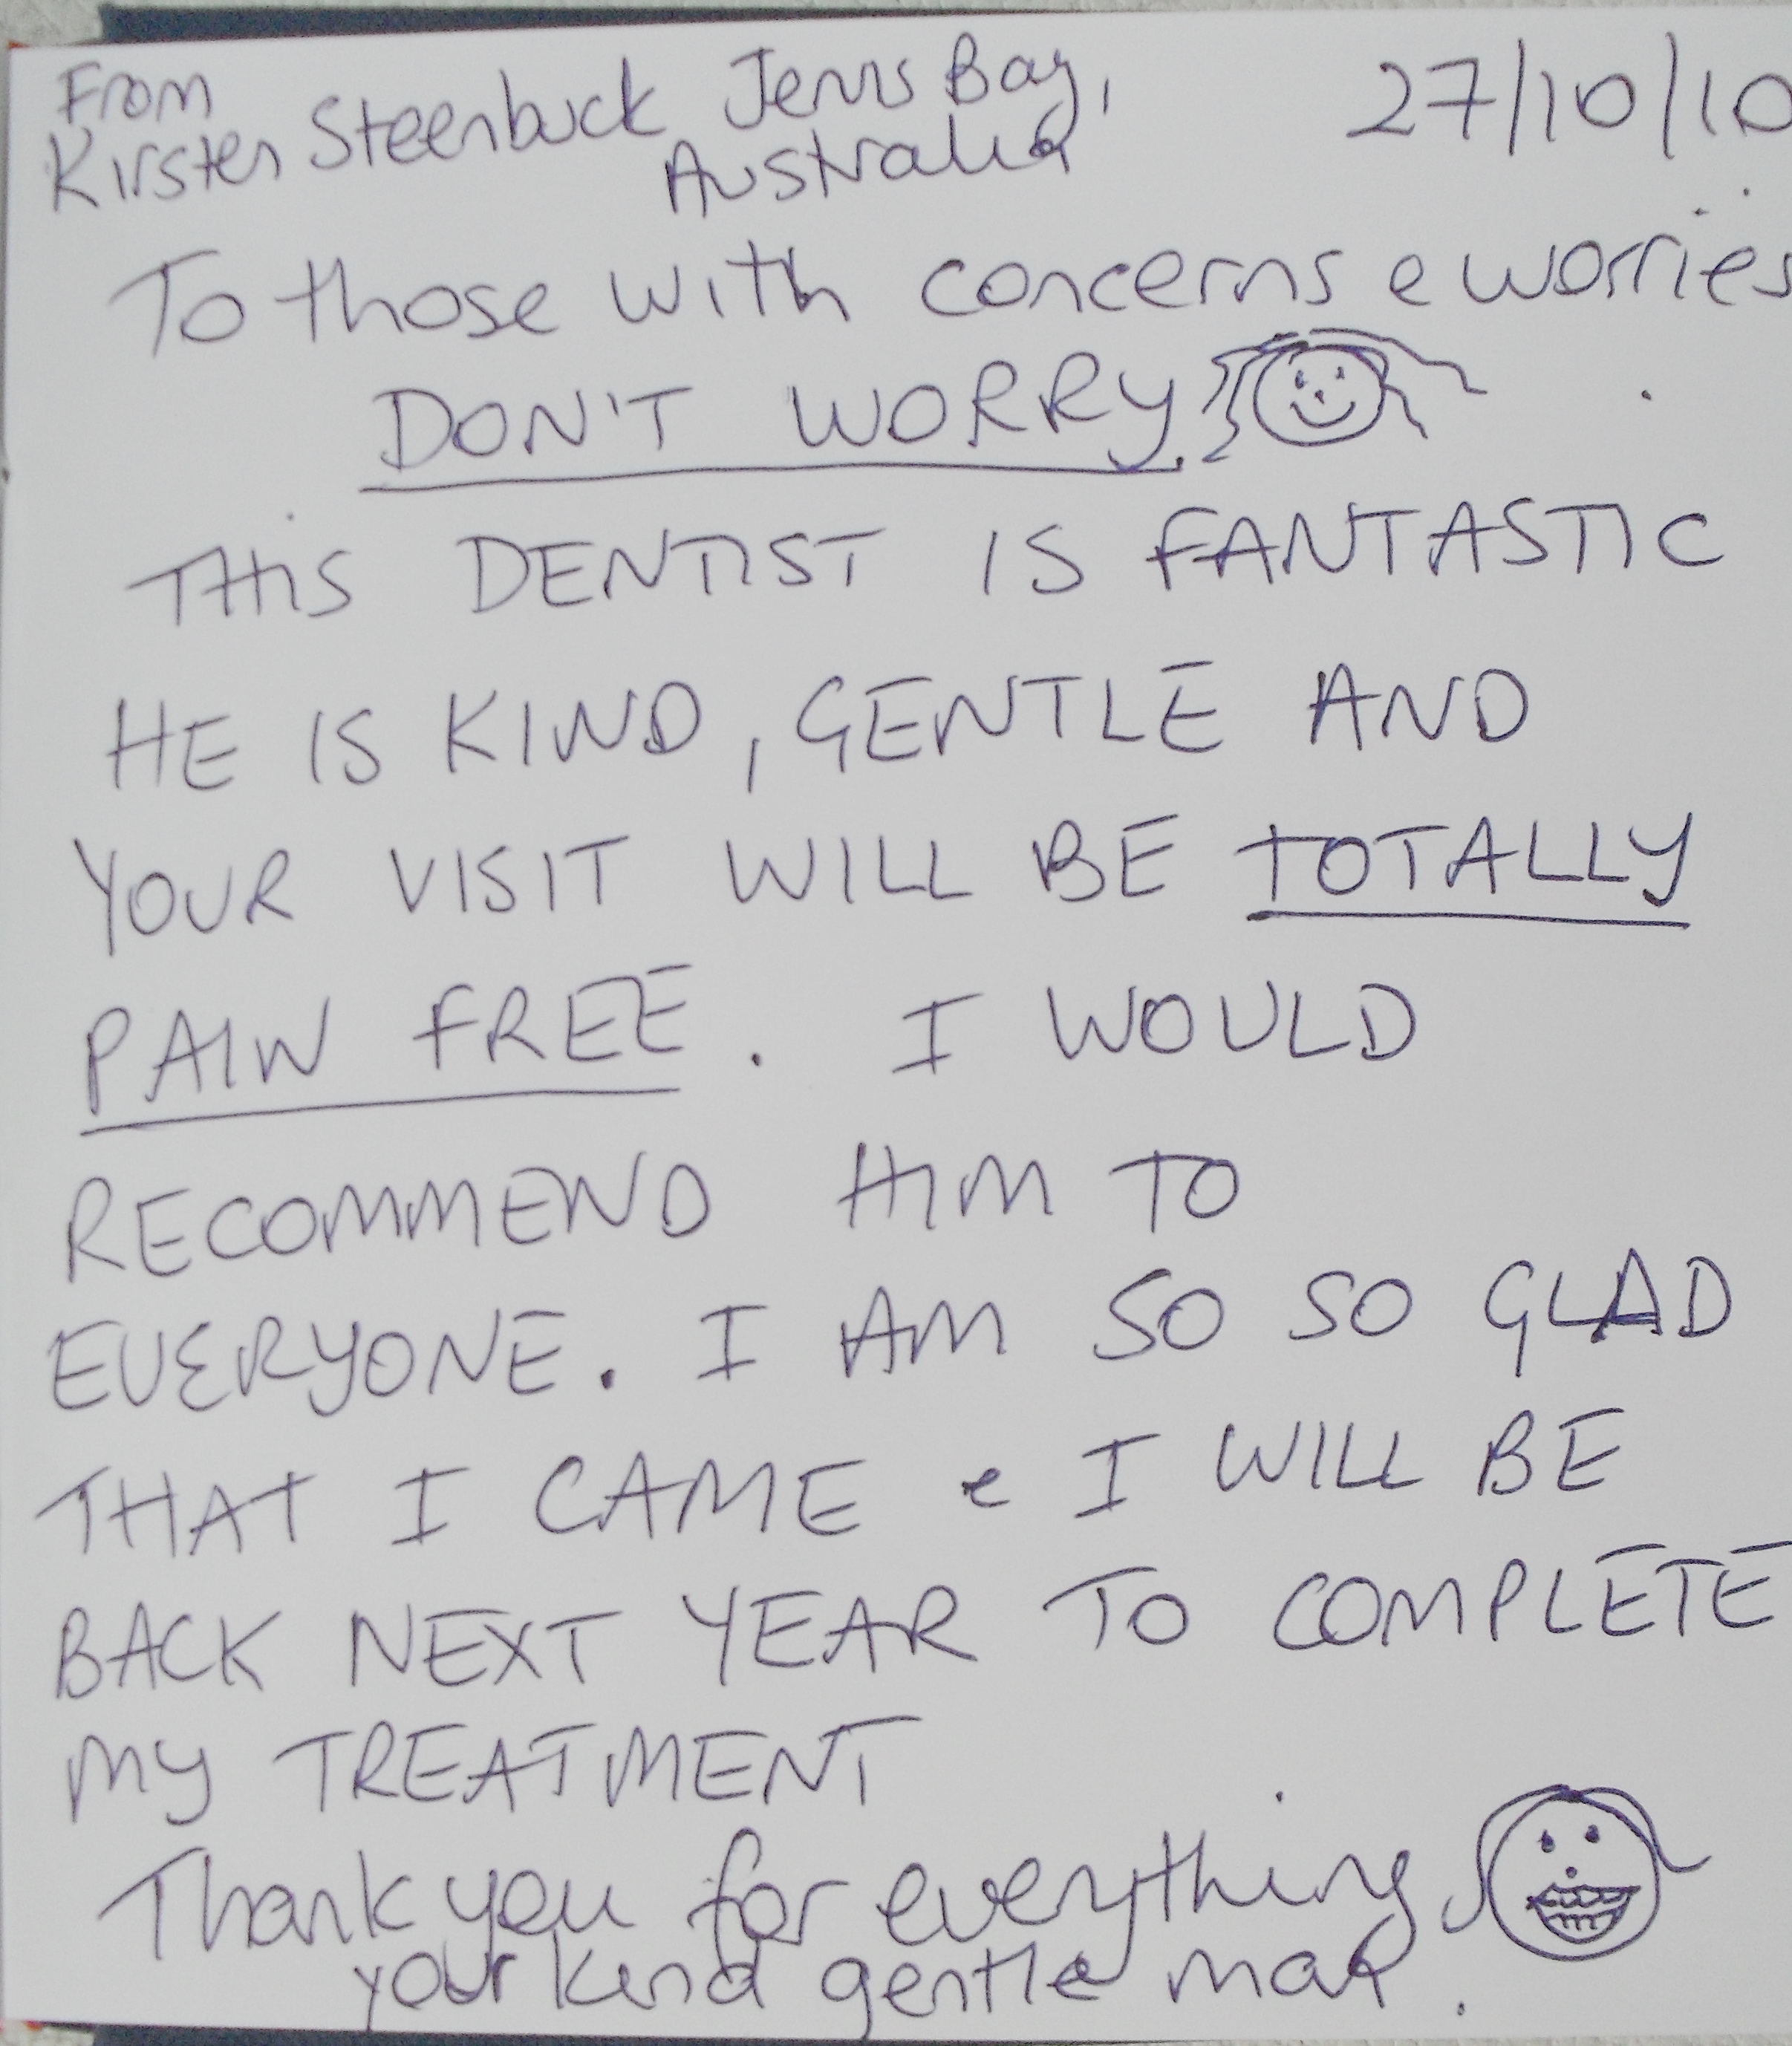 From
Kirsten Steenbuck Jervis Bay,
Australia
27/10/10
To those with concerns & worries
DON'T WORRY.
THIS DENTIST IS FANTASTIC
HE IS KIND, GENTLE AND
YOUR VISIT WILL BE TOTALLY
PAIN FREE. I WOULD
RECOMMEND HIM TO
EVERYONE. I AM SO SO GLAD
THAT I CAME & I WILL BE
BACK NEXT YEAR TO COMPLETE
MY TREATMENT
Thank you for everything
your kind gentle man.